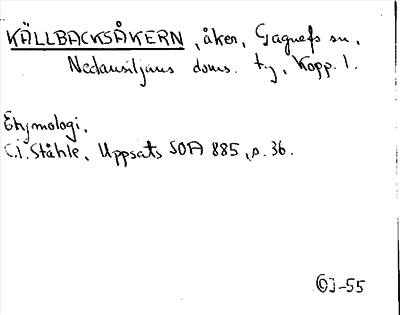 KÄLLBACKSÅKERN, åker, Gagnefs sn,
Nedansiljans doms. tg, Kopp. l.
Etymologi.
C.I. Ståhle, Uppsats SOA 885, s. 36.
OJ-55